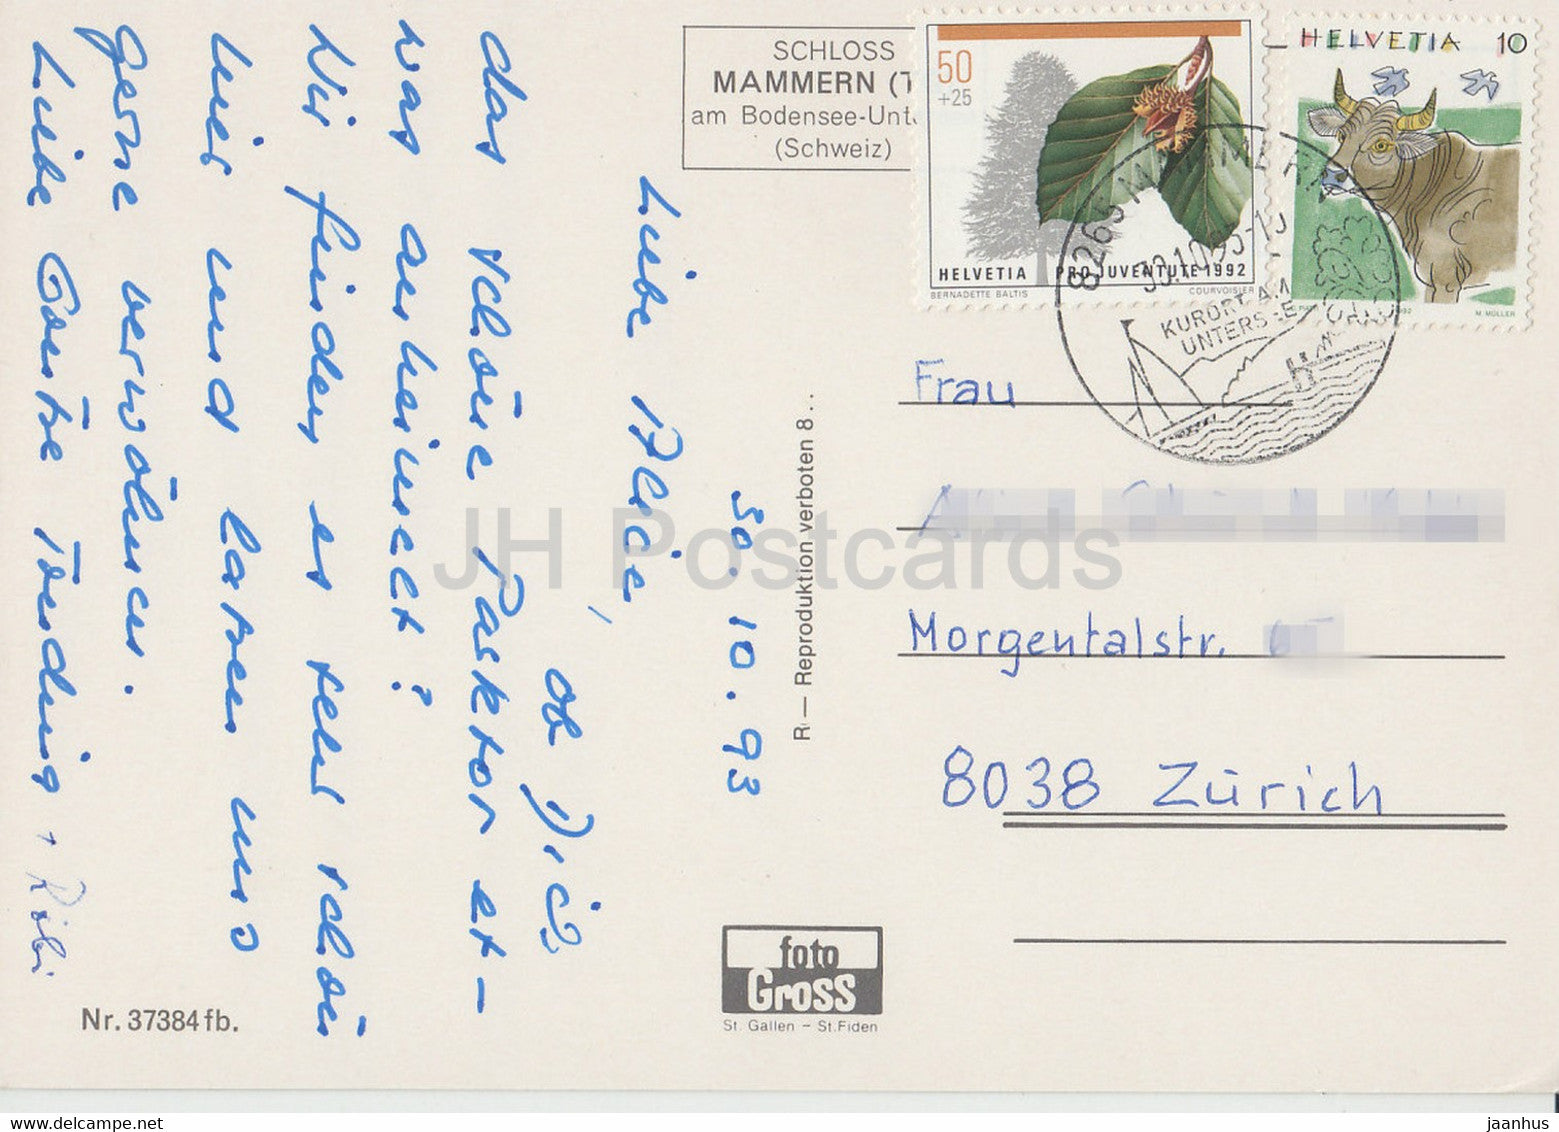 SCHLOSS
MAMMERN (T
am Bodensee-Unt
(Schweiz)
50
+25
HELVETIA PRO JUVENTUTE 1992
BERNADETTE BALTIS COURVOISIER
HELVETIA 10
M. MÜLLER
8265 MAMMERN
30.10.93-15
KURORT AM
UNTERSEE
30.10.93
Liebe Alice,
ob Dich
das schöne Pasktor er-
was anheimelt?
Wir finden es sehr schön
hier und lassen uns
gerne verwöhnen.
Liebe Grüsse
Frau
Morgentalstr.
8038 Zürich
R — Reproduktion verboten 8..
foto
Gross
St. Gallen - St. Fiden
Nr. 37384 fb.
JH Postcards
jaanhus